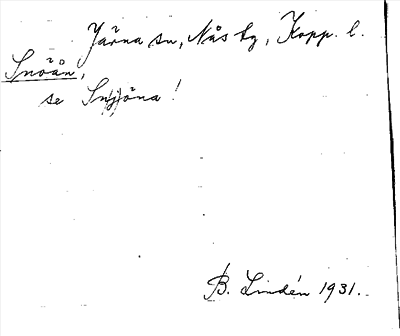 Järna sn, Nås tg, Kopp. l.
Snöån,
se Snjöna!
B. Lindén 1931.